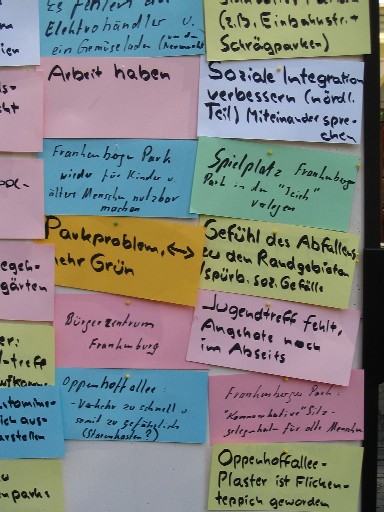 Es fehlen
Elektrohändler u.
ein Gemüseladen
(z.B. Einbahnstr.+
Schrägparken)
Arbeit haben
Soziale Integration
verbessern (nördl.
Teil) Miteinander spre-
chen
Frankenberger Park
wieder für Kinder u.
ältere Menschen nutzbar
machen
Spielplatz Frankenberger
Park in den "Teich"
verlegen
Parkproblem, <->
mehr Grün
Gefühl des Abfallens
zu den Randgebieten
/spürb. soz. Gefälle
gärten
Bürgerzentrum
Frankenburg
Jugendtreff fehlt,
Angebote noch
im Abseits
-treff
Oppenhoffallee:
- Verkehr zu schnell u.
somit zu gefährlich
(Starenkasten?)
Frankenberger Park:
"Kommunikative" Sitz-
gelegenheit für alte Menschen
Oppenhoffallee-
Pflaster ist Flicken-
teppich geworden